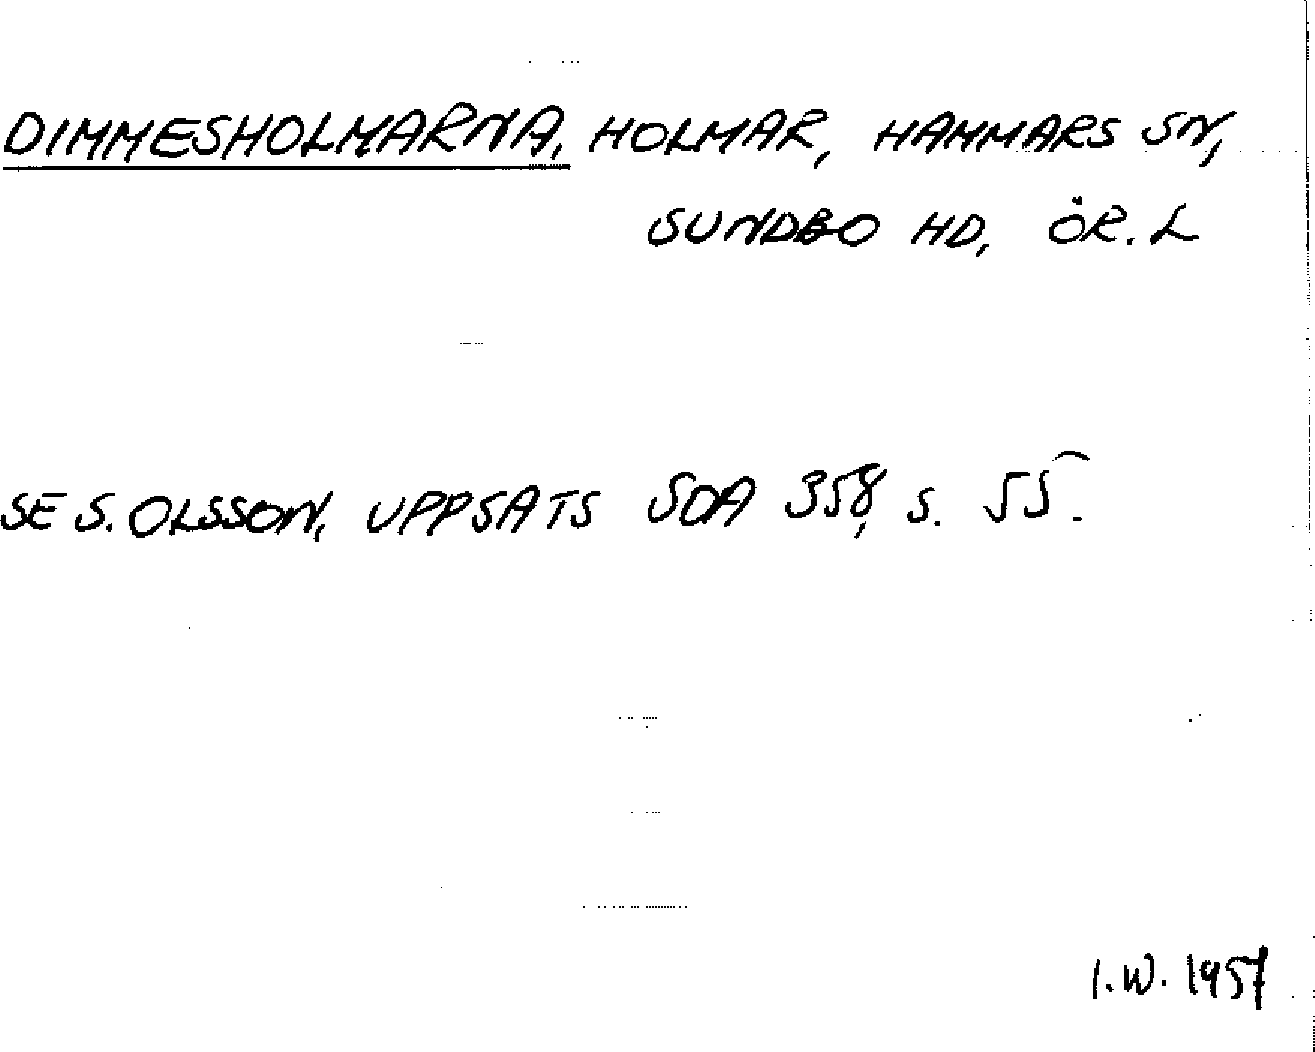 DIMMESHOLMARNA, HOLMAR, HAMMARS SN,
SUNDBO HD, ÖR. L
SE S. OLSSON, UPPSATS SOA 358, s. 55.
I.W. 1957